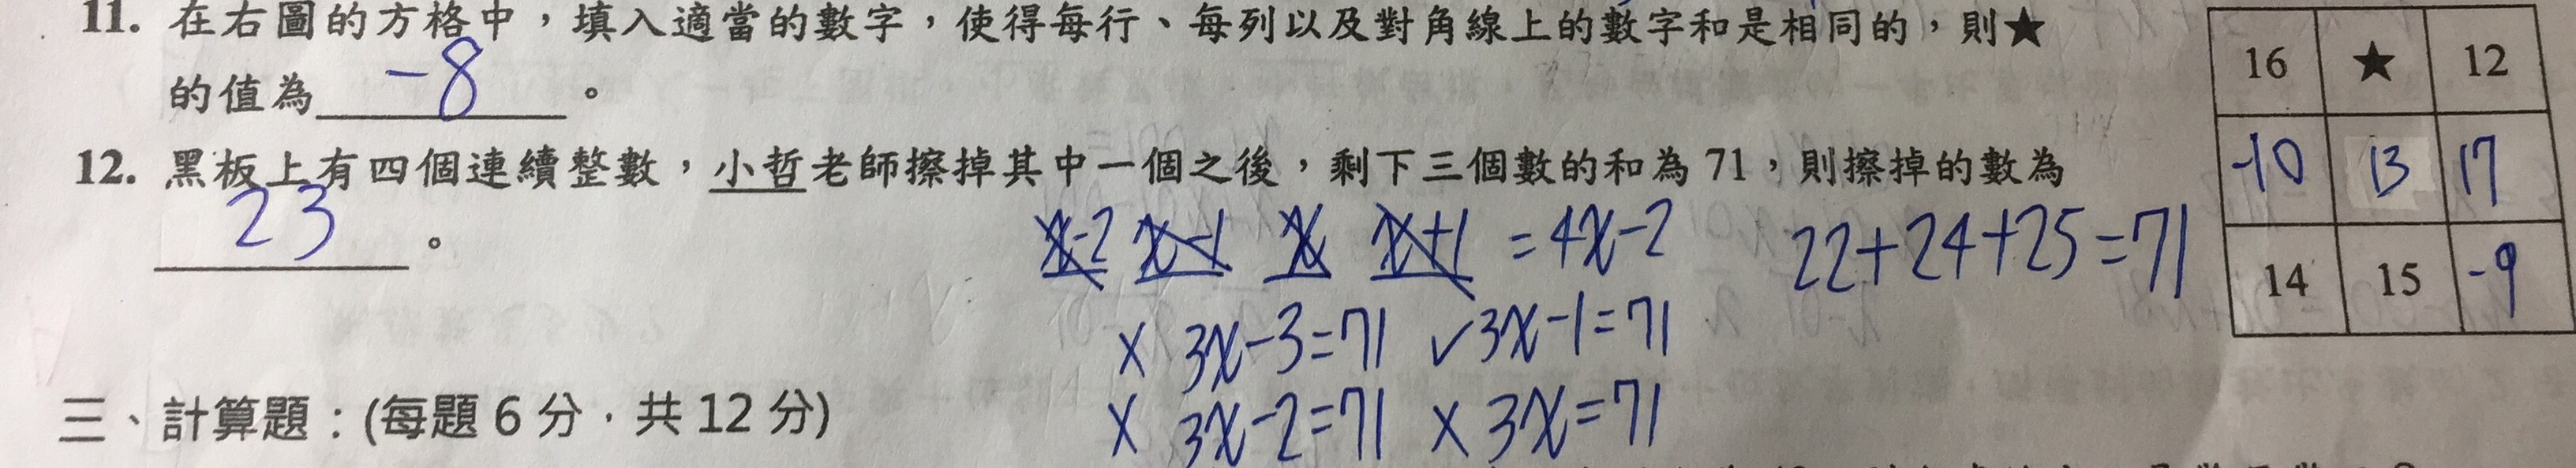 11. 在右圖的方格中，填入適當的數字，使得每行、每列以及對角線上的數字和是相同的，則★
的值為 -8 。
16 ★ 12
-10 13 17
14 15 -9
12. 黑板上有四個連續整數，小哲老師擦掉其中一個之後，剩下三個數的和為 71，則擦掉的數為
23 。
x-2 x-1 x x+1 = 4x-2
22+24+25=71
× 3x-3=71 ✓3x-1=71
× 3x-2=71 × 3x=71
三、計算題：(每題 6 分，共 12 分)